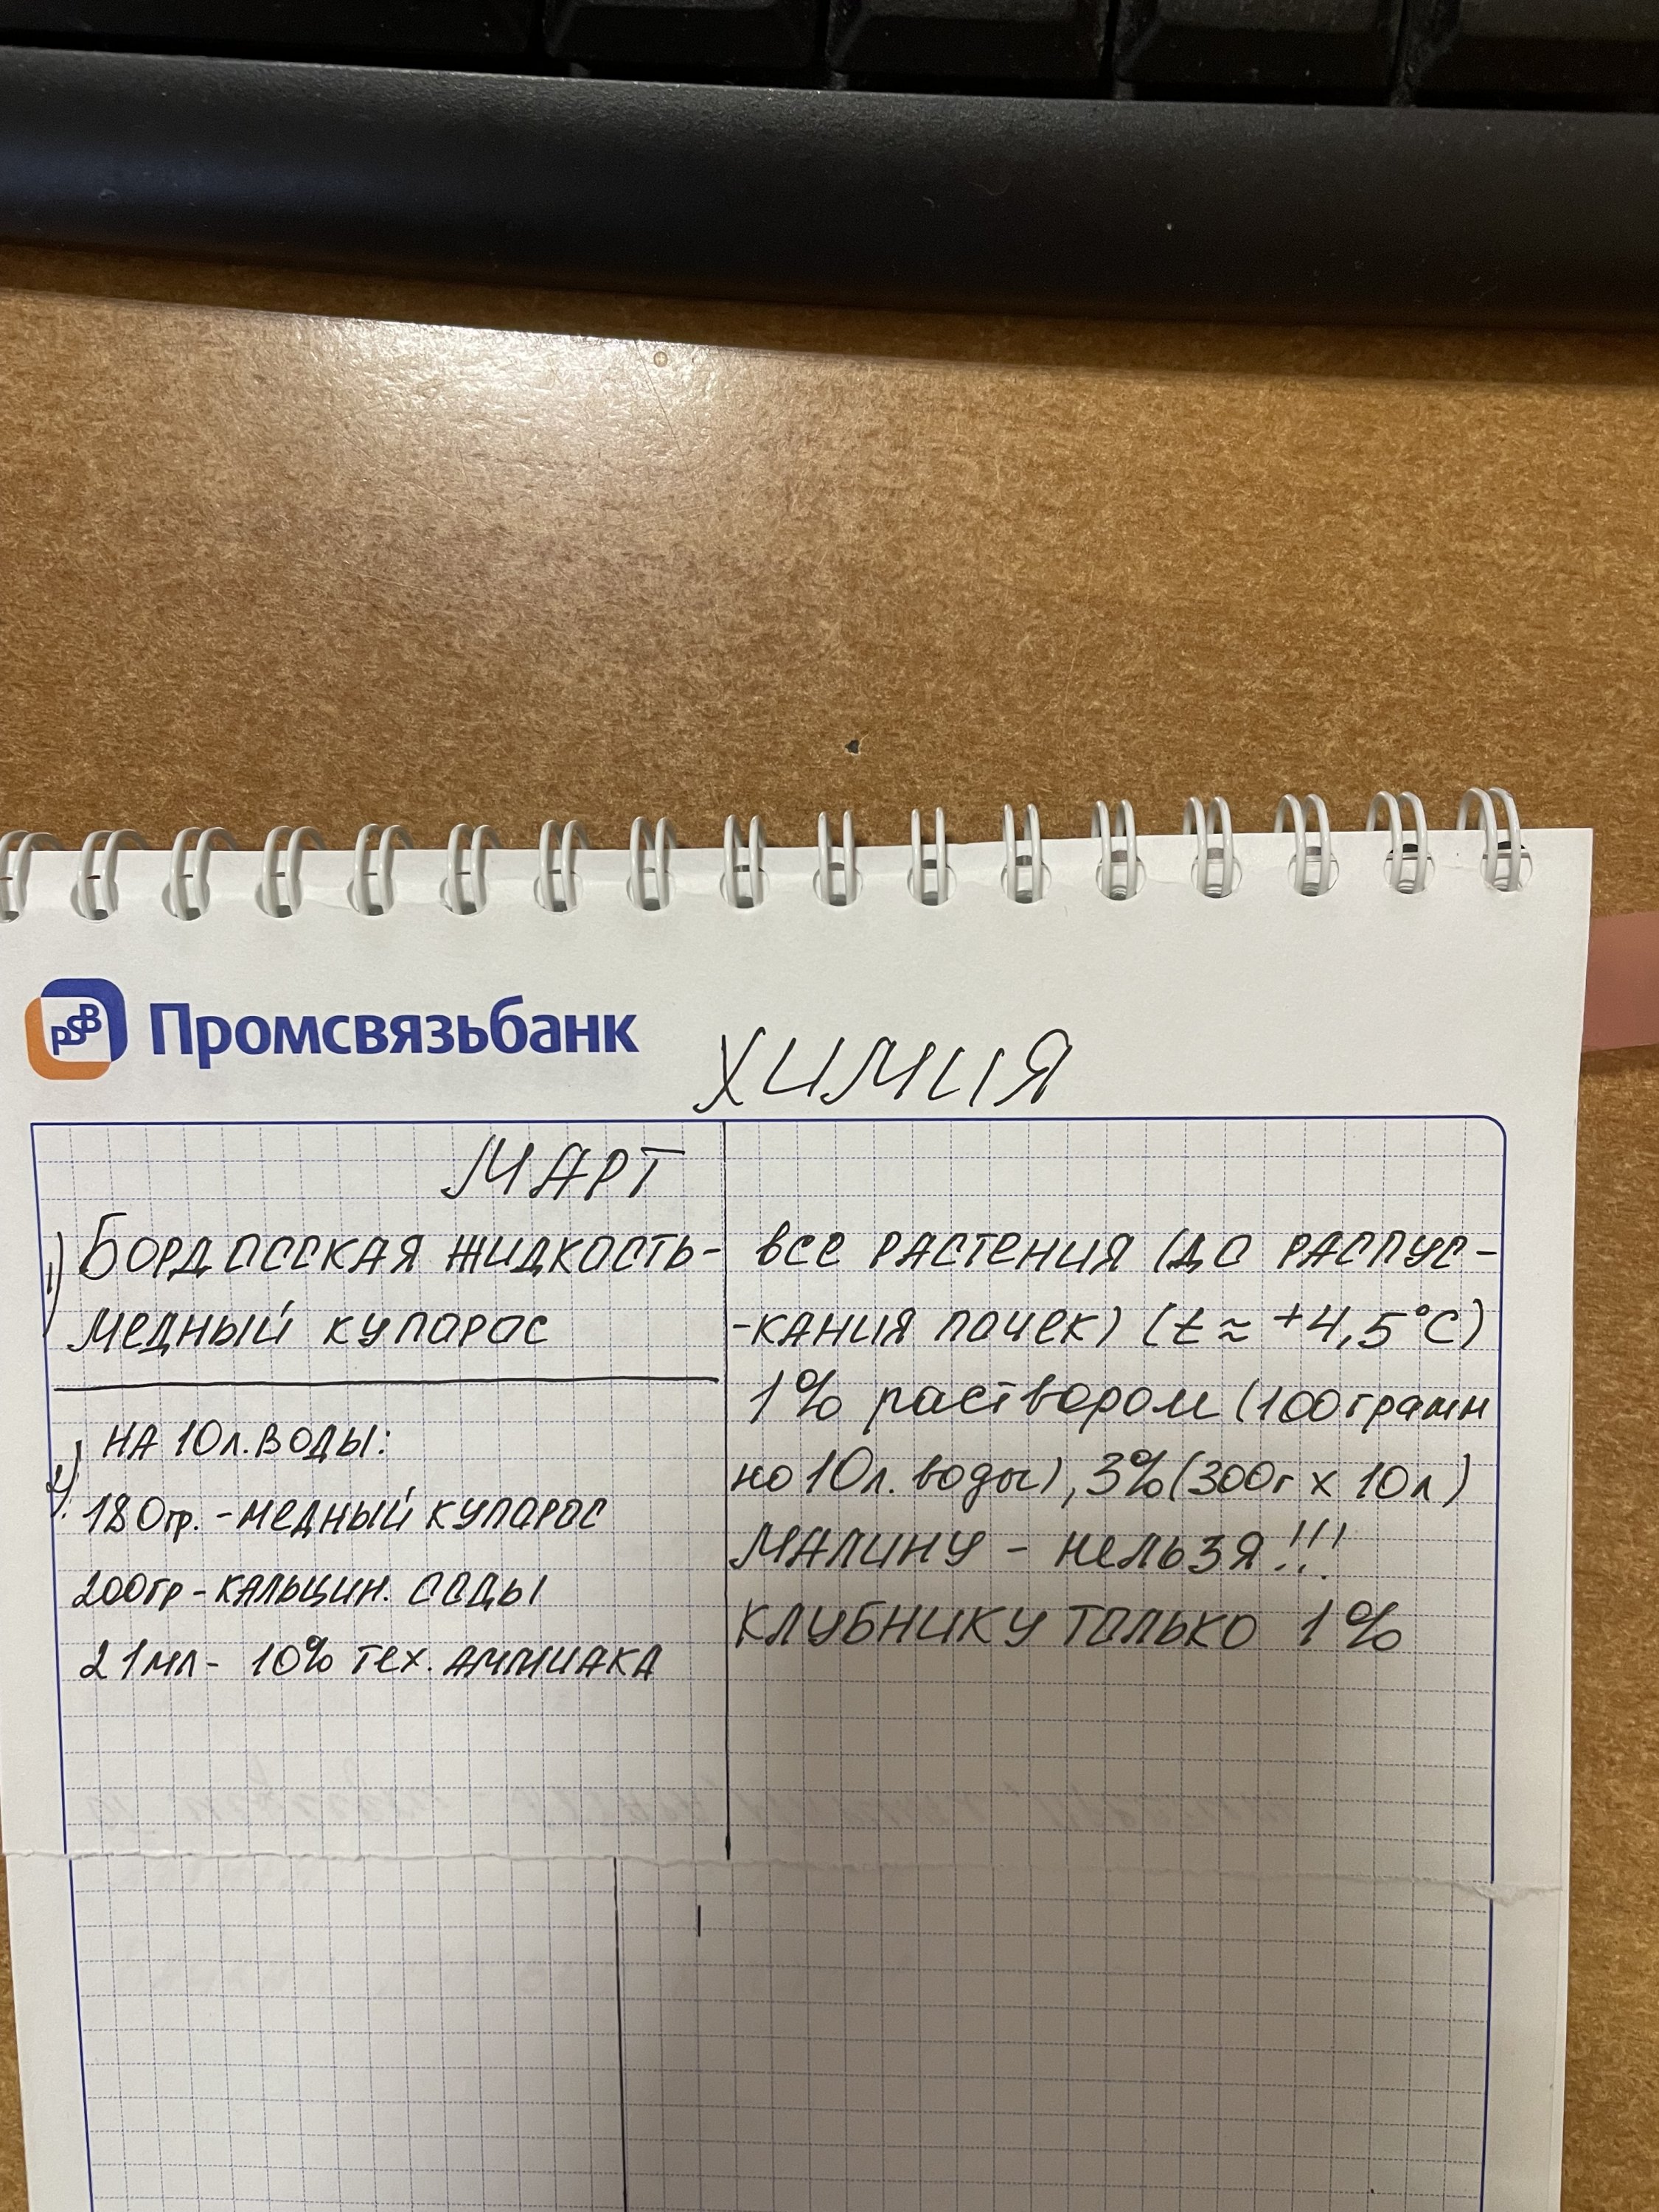 PSB Промсвязьбанк
ХИМИЯ
МАРТ
1) БОРДОССКАЯ ЖИДКОСТЬ-
МЕДНЫЙ КУПОРОС
2) НА 10л. ВОДЫ:
180гр. - МЕДНЫЙ КУПОРОС
200гр - КАЛЬЦИН. СОДЫ
21мл - 10% ТЕХ. АММИАКА
ВСЕ РАСТЕНИЯ (ДО РАСПУС-
-КАНИЯ ПОЧЕК) (t ≈ +4,5°C)
1% раствором (100грамм
на 10л. воды), 3% (300г х 10л)
МАЛИНУ - НЕЛЬЗЯ!!!
КЛУБНИКУ ТОЛЬКО 1%